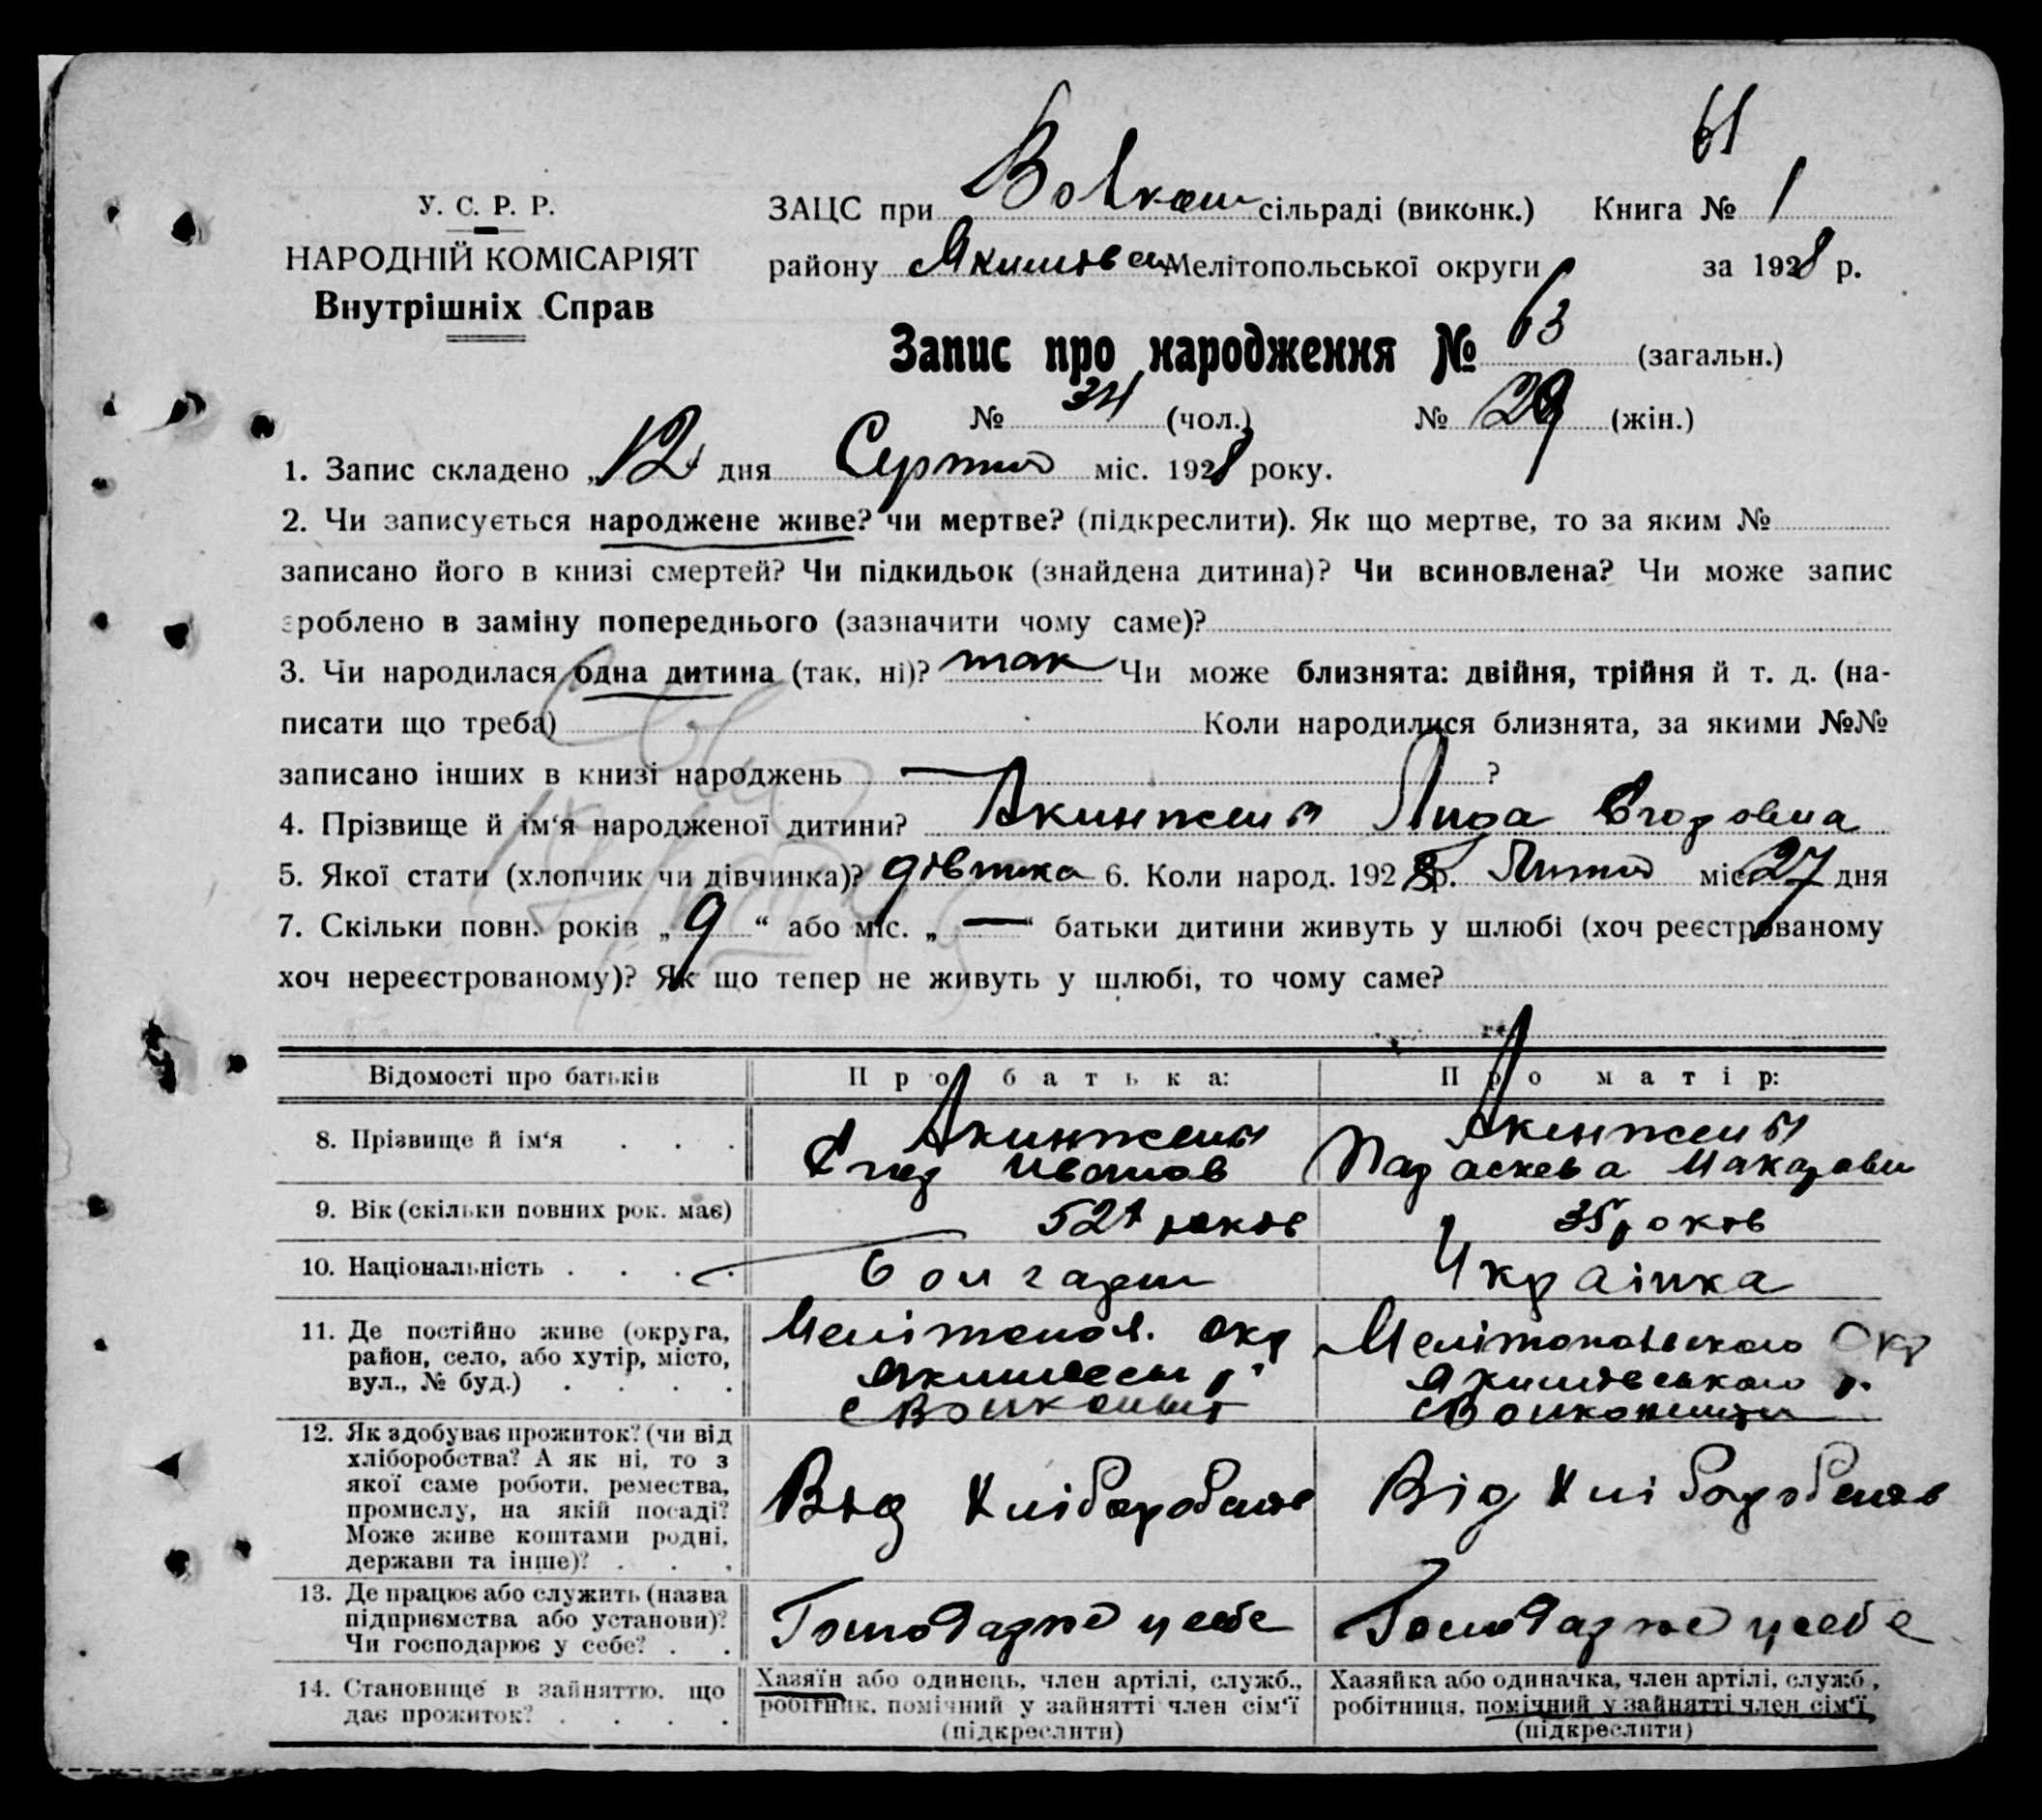 61
У. С. Р. Р.
НАРОДНІЙ КОМІСАРІЯТ
Внутрішніх Справ
ЗАЦС при Вовкан сільраді (виконк.) Книга № 1
району Якимовськ Мелітопольської округи за 1928 р.
Запис про народження № 63 (загальн.)
№ 34 (чол.) № 29 (жін.)
1. Запис складено „12 дня Серпня міс. 1928 року.
2. Чи записується народжене живе? чи мертве? (підкреслити). Як що мертве, то за яким №
записано його в книзі смертей? Чи підкидьок (знайдена дитина)? Чи всиновлена? Чи може запис
зроблено в заміну попереднього (зазначити чому саме)?
3. Чи народилася одна дитина (так, ні)? так Чи може близнята: двійня, трійня й т. д. (на-
писати що треба) Коли народилися близнята, за якими №№
записано інших в книзі народжень — ?
4. Прізвище й ім‘я народженої дитини? Акинжелы Лида Егоровна
5. Якої стати (хлопчик чи дівчинка)? дівчика 6. Коли народ. 1928 р. міс 27 дня
7. Скільки повн. років „ 9 “ або міс. „ — “ батьки дитини живуть у шлюбі (хоч реєстрованому
хоч нереєстрованому)? Як що тепер не живуть у шлюбі, то чому саме?
Відомості про батьків Про батька: Про матір:
8. Прізвище й ім‘я . . . Акинжелы Егор Иванов Акинжелы Параскева Макаровн
9. Вік (скільки повних рок. має) 52 років 35 років
10. Національність . . . . Болгарин Українка
11. Де постійно живе (округа, район, село, або хутір, місто, вул., № буд.) . . . . Мелітопол. окр Якимовськ р. Мелітопольского Окр Якимівського р.
12. Як здобував прожиток? (чи від хліборобства? А як ні, то з якої саме роботи, ремества, промислу, на якій посаді? Може живе коштами родні, держави та інше)? . . . Від Хліборобства Від Хліборобства
13. Де працює або служить (назва підприємства або установи)? Чи господарює у себе? . . Господарює у себе Господарює у себе
14. Становище в зайняттю, що дає прожиток? . . . . Хазяїн або одинець, член артілі, служб., робітник, помічний у зайнятті член сім‘ї (підкреслити) Хазяйка або одиначка, член артілі, служб., робітниця, помічний у зайнятті член сім‘ї (підкреслити)